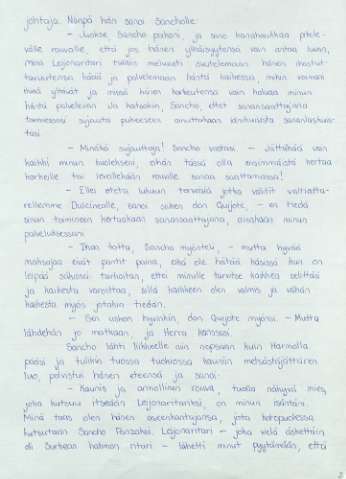 johtaja. Niinpä hän sanoi Sancholle:
— Juokse, Sancho poikani, ja sano kanahaukkaa pitele-
välle rouvalle, että jos hänen ylhäisyytensä vain antaa luvan,
minä Leijonaritari tulisin mielusti suutelemaan hänen ihastut-
tavuutensa käsiä ja palvelemaan häntä kaikessa, mihin voimani
minä ylhäisyys ja missä hänen korkeutensa vain haluaa minun
häntä palvelevan. Ja katsokin, Sancho, ettet sanansaattajana
toimiessasi sijoita puheeseen ainuttakaan sananlaskua-
tasi.
— Minäkö sijoittaja! Sancho vastasi. — Jättäkää vain
kaikki minun huolekseni, eihän tässä olla ensimmäistä kertaa
korkeille tai leveällekään rouville sanaa saattamassa!
— Ellei oteta lukuun terveisiä jotka veit valtiatta-
relleenme Dulcinealle, sanoi siihen don Quijote, — en tiedä
sinun toimineen kertaakaan sanansaattajana, ainakaan minun
palveluksessani.
— Ihan totta, Sancho myönteli, — mutta hyvää
maksajaa eivät pantit paina, eikä ole hätää käsissä kun on
leipää säkissä: tarkoitan, ettei minulle tarvitse kaikkea selittää
ja kaikesta varoittaa, sillä kaikkeen olen valmis ja vähän
kaikesta myös jotakin tiedän.
— Sen uskon hyvinkin, don Quijote myönsi. — Mutta
lähdehän jo matkaan, ja Herra kanssasi.
Sancho lähti liikkeelle niin nopsaan kuin Harmolla
pääsi ja tulikin tuossa tuokiossa kauniin metsästäjättären
luo, polvistui hänen eteensä ja sanoi:
— Kaunis ja armollinen rouva, tuolla näkyvä mies,
joka kutsuu itseään Leijonaritariksi, on minun isäntäni.
Minä taas olen hänen aseenkantajansa, jota kotipuolessa
kutsutaan Sancho Panzaksi. Leijonaritari — joka vielä äskettäin
oli Surkean hahmon ritari — lähetti minut pyytämään, että